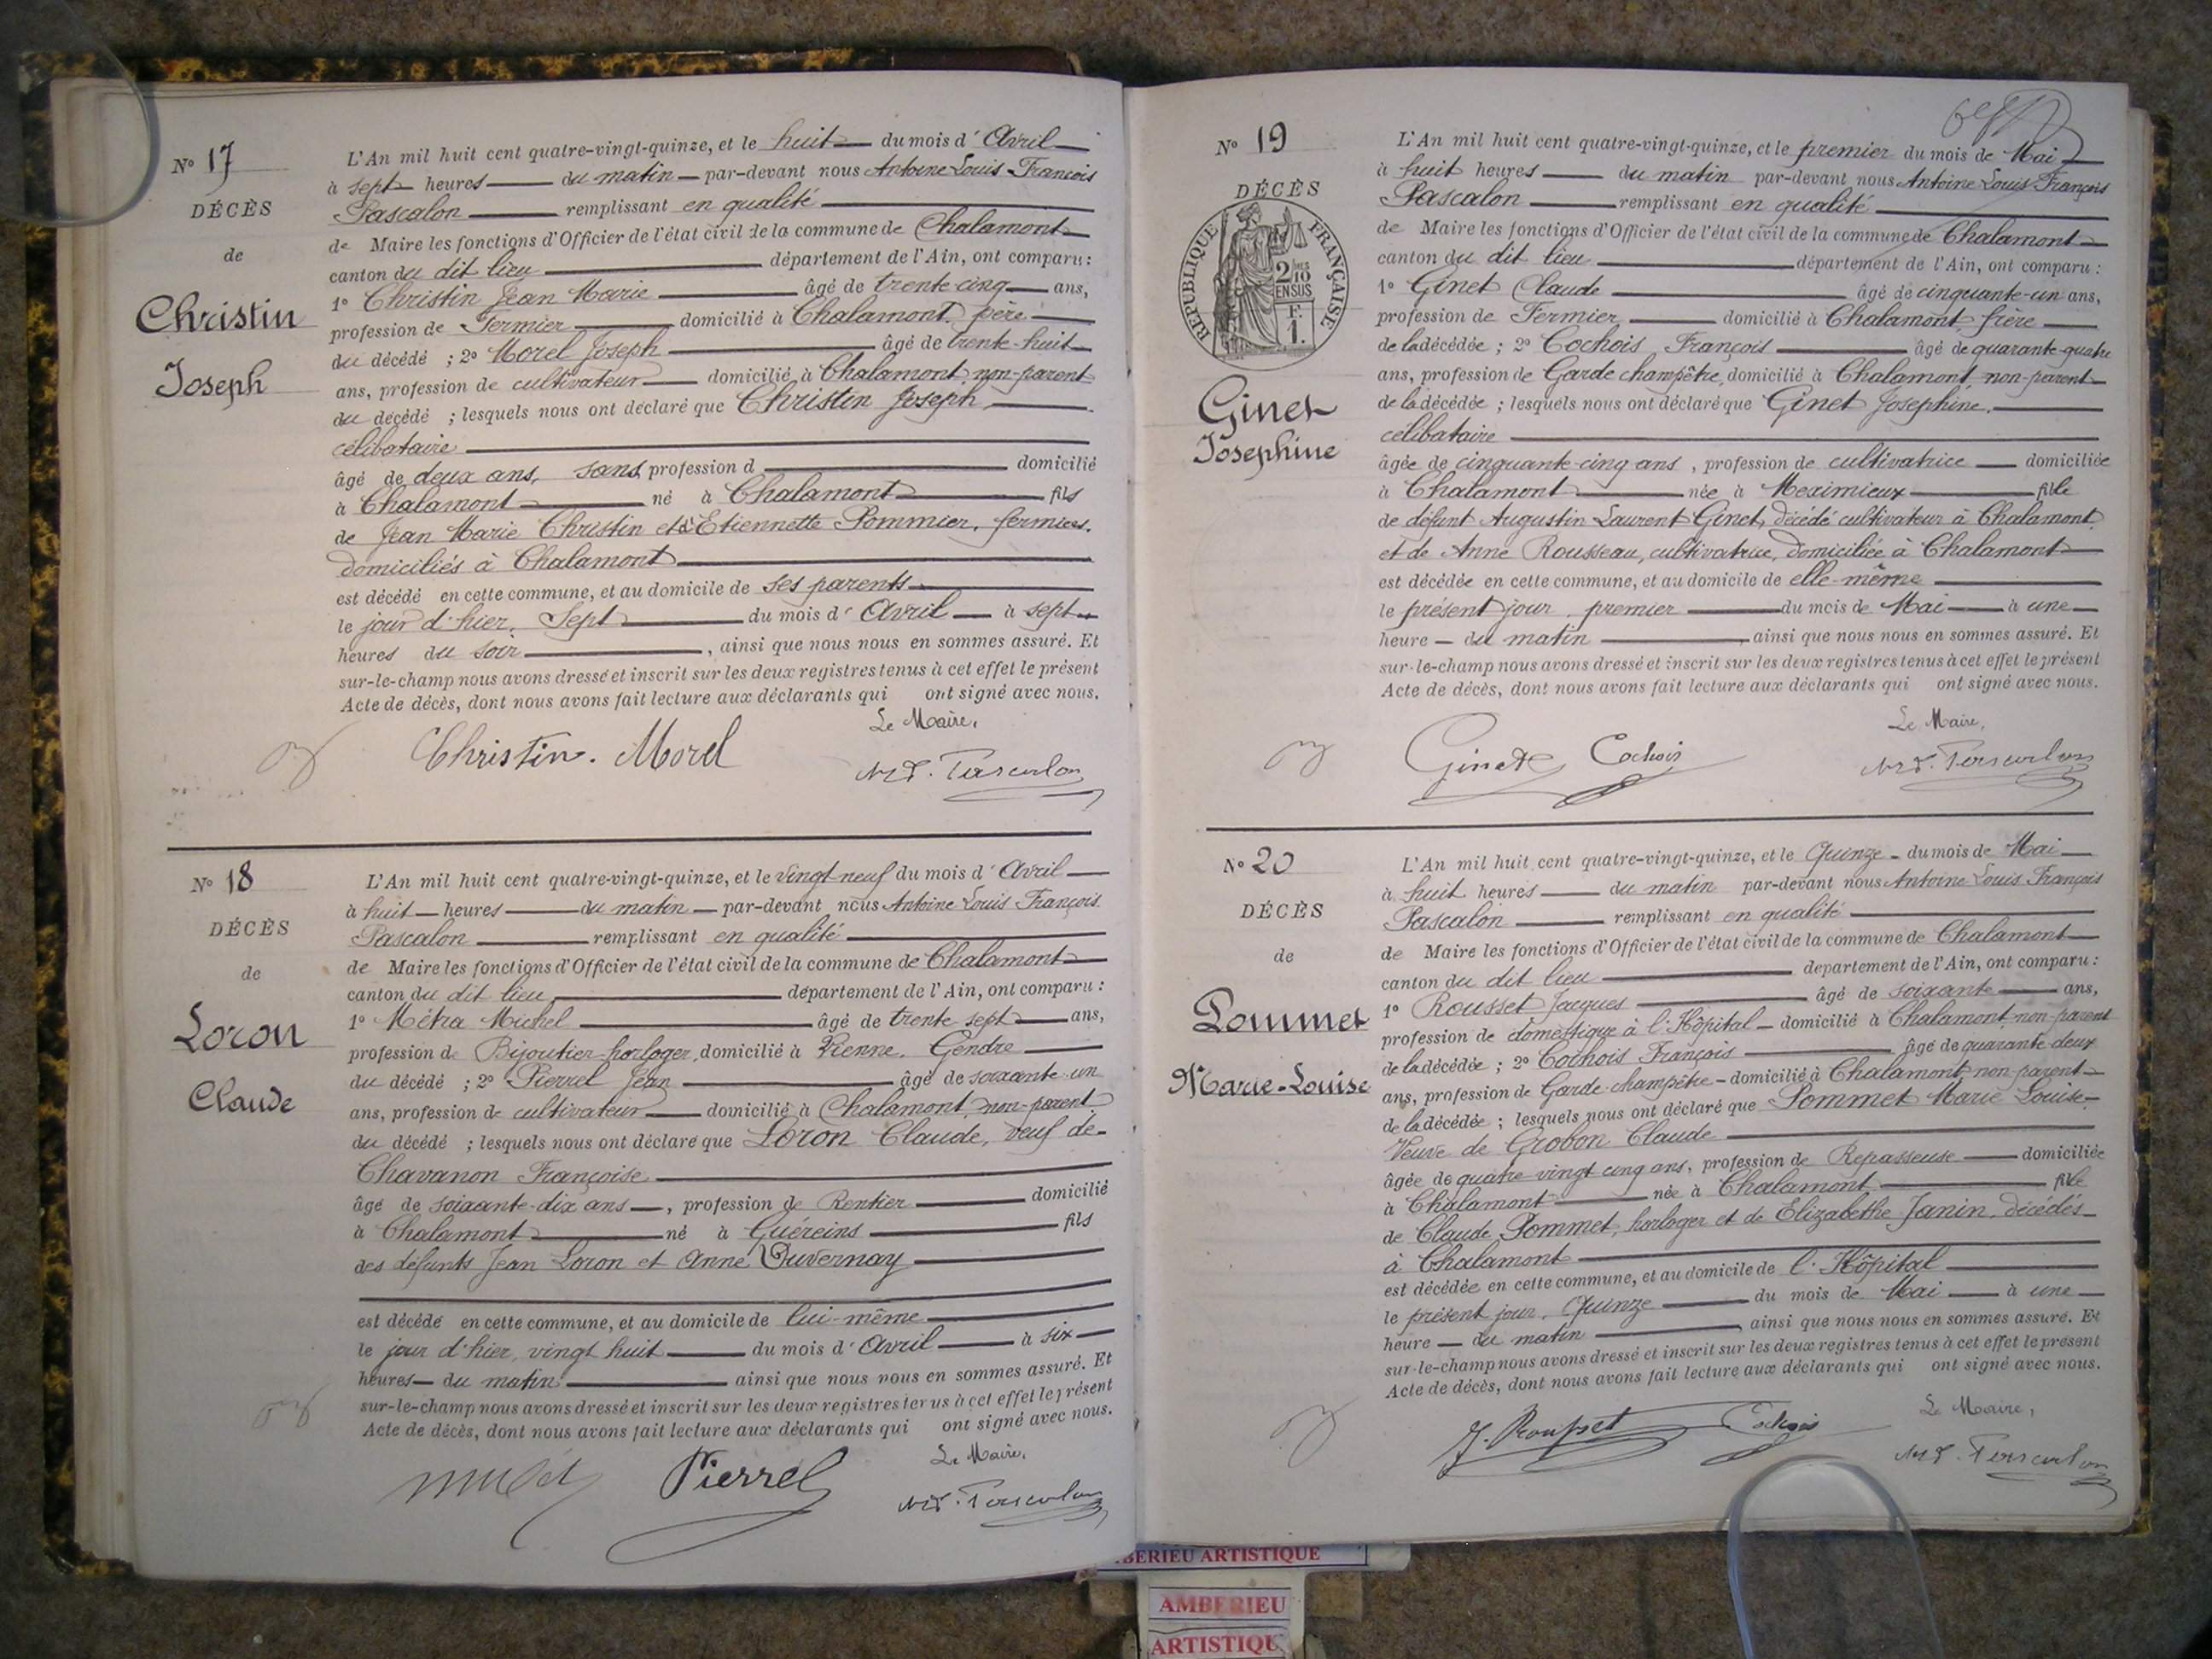 Nº 17
DÉCÈS
de
Christin
Joseph
L'An mil huit cent quatre-vingt-quinze, et le huit du mois d'Avril
à sept heures du matin par-devant nous Antoine Louis François
Pascalon remplissant en qualité
de Maire les fonctions d'Officier de l'état civil de la commune de Chalamont
canton du dit lieu département de l'Ain, ont comparu :
1º Christin Jean Marie âgé de trente cinq ans,
profession de Fermier domicilié à Chalamont, père
du décédé ; 2º Morel Joseph âgé de trente-huit
ans, profession de cultivateur domicilié à Chalamont, non-parent
du décédé ; lesquels nous ont déclaré que Christin Joseph,
célibataire
âgé de deux ans, sans profession d domicilié
à Chalamont né à Chalamont fils
de Jean Marie Christin et d'Etiennette Pommier, fermiers.
domiciliés à Chalamont
est décédé en cette commune, et au domicile de ses parents
le jour d'hier, Sept du mois d'Avril à sept
heures du soir, ainsi que nous nous en sommes assuré. Et
sur-le-champ nous avons dressé et inscrit sur les deux registres tenus à cet effet le présent
Acte de décès, dont nous avons fait lecture aux déclarants qui ont signé avec nous.
Le Maire,
Christin. Morel
Nº 18
DÉCÈS
de
Loron
Claude
L'An mil huit cent quatre-vingt-quinze, et le vingt-neuf du mois d'Avril
à huit heures du matin par-devant nous Antoine Louis François
Pascalon remplissant en qualité
de Maire les fonctions d'Officier de l'état civil de la commune de Chalamont
canton du dit lieu département de l'Ain, ont comparu :
1º Métra Michel âgé de trente sept ans,
profession de Bijoutier-horloger, domicilié à Vienne, Gendre
du décédé ; 2º Pierrel Jean âgé de soixante-un
ans, profession de cultivateur domicilié à Chalamont, non-parent
du décédé ; lesquels nous ont déclaré que Loron Claude, veuf de
Chavanon Françoise
âgé de soixante-dix ans, profession de Rentier domicilié
à Chalamont né à Guéreins fils
des défunts Jean Loron et Anne Duvernay
est décédé en cette commune, et au domicile de lui-même
le jour d'hier, vingt huit du mois d'Avril à six
heures du matin ainsi que nous nous en sommes assuré. Et
sur-le-champ nous avons dressé et inscrit sur les deux registres tenus à cet effet le présent
Acte de décès, dont nous avons fait lecture aux déclarants qui ont signé avec nous.
Le Maire,
Pierrel
Nº 19
DÉCÈS
RÉPUBLIQUE FRANÇAISE
2/10 EN SUS
F. 1.
Ginet
Josephine
L'An mil huit cent quatre-vingt-quinze, et le premier du mois de Mai
à huit heures du matin par-devant nous Antoine Louis François
Pascalon remplissant en qualité
de Maire les fonctions d'Officier de l'état civil de la commune de Chalamont
canton du dit lieu département de l'Ain, ont comparu :
1º Ginet Claude âgé de cinquante-un ans,
profession de Fermier domicilié à Chalamont, frère
de la décédée ; 2º Cochois François âgé de quarante-quatre
ans, profession de Garde champêtre, domicilié à Chalamont, non-parent
de la décédée ; lesquels nous ont déclaré que Ginet Josephine,
célibataire
âgée de cinquante-cinq ans, profession de cultivatrice domiciliée
à Chalamont née à Meximieux fille
de défunt Augustin Laurent Ginet, décédé cultivateur à Chalamont
et de Anne Rousseau, cultivatrice, domiciliée à Chalamont
est décédée en cette commune, et au domicile de elle-même
le présent jour, premier du mois de Mai à une
heure du matin, ainsi que nous nous en sommes assuré. Et
sur-le-champ nous avons dressé et inscrit sur les deux registres tenus à cet effet le présent
Acte de décès, dont nous avons fait lecture aux déclarants qui ont signé avec nous.
Le Maire,
Ginet Cochois
Nº 20
DÉCÈS
de
Pommet
Marie-Louise
L'An mil huit cent quatre-vingt-quinze, et le Quinze du mois de Mai
à huit heures du matin par-devant nous Antoine Louis François
Pascalon remplissant en qualité
de Maire les fonctions d'Officier de l'état civil de la commune de Chalamont
canton du dit lieu département de l'Ain, ont comparu :
1º Rousset Jacques âgé de soixante ans,
profession de domestique à l'Hôpital domicilié à Chalamont, non-parent
de la décédée ; 2º Cochois François âgé de quarante-deux
ans, profession de Garde-champêtre domicilié à Chalamont, non-parent
de la décédée ; lesquels nous ont déclaré que Pommet Marie Louise
Veuve de Grobon Claude
âgée de quatre vingt cinq ans, profession de Repasseuse domiciliée
à Chalamont née à Chalamont fille
de Claude Pommet, horloger et de Elizabethe Janin, décédés
à Chalamont
est décédée en cette commune, et au domicile de l'Hôpital
le présent jour, Quinze du mois de Mai à une
heure du matin ainsi que nous nous en sommes assuré. Et
sur-le-champ nous avons dressé et inscrit sur les deux registres tenus à cet effet le présent
Acte de décès, dont nous avons fait lecture aux déclarants qui ont signé avec nous.
Le Maire,
J. Rousset Cochois
BERIEU ARTISTIQUE
AMBERIEU
ARTISTIQU